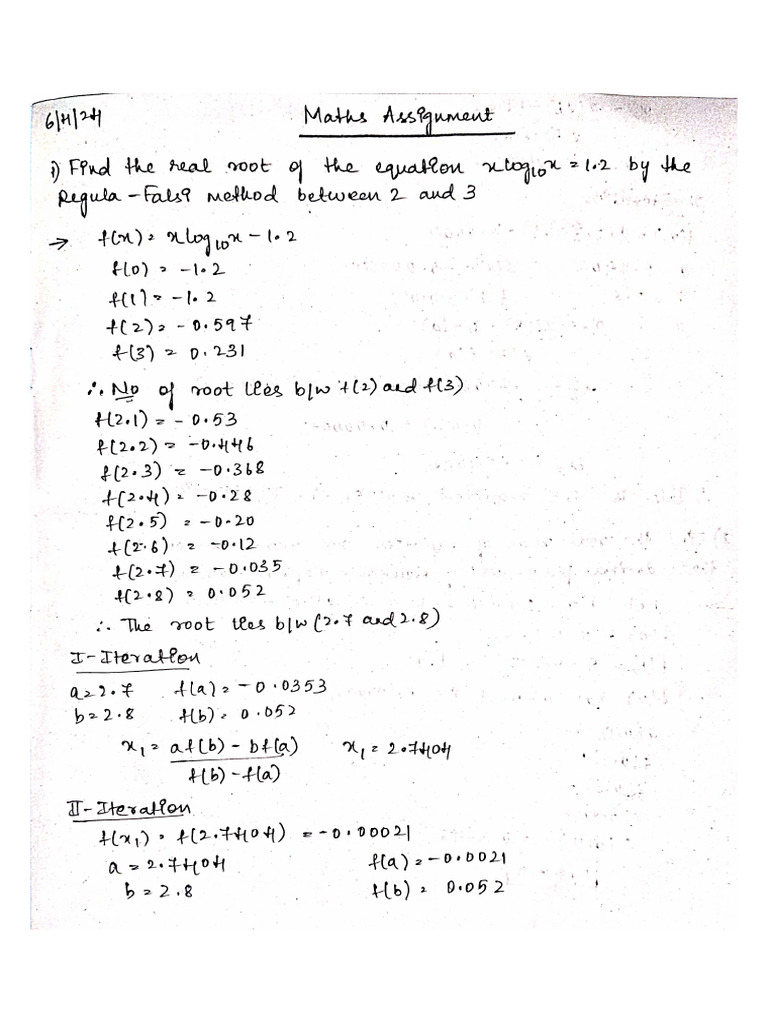 6/4/24
Maths Assignment
1) Find the real root of the equation xlog₁₀x = 1.2 by the
Regula-Falsi method between 2 and 3
→ f(x) = xlog₁₀x - 1.2
f(0) = -1.2
f(1) = -1.2
f(2) = -0.597
f(3) = 0.231
∴ No of root lies b/w f(2) and f(3).
f(2.1) = -0.53
f(2.2) = -0.446
f(2.3) = -0.368
f(2.4) = -0.28
f(2.5) = -0.20
f(2.6) = -0.12
f(2.7) = -0.035
f(2.8) = 0.052
∴ The root lies b/w (2.7 and 2.8)
I-Iteration
a=2.7 f(a) = -0.0353
b=2.8 f(b) = 0.052
x₁ = af(b) - bf(a) x₁ = 2.7404
f(b) - f(a)
II-Iteration
f(x₁) = f(2.7404) = -0.00021
a = 2.7404 f(a) = -0.0021
b = 2.8 f(b) = 0.052